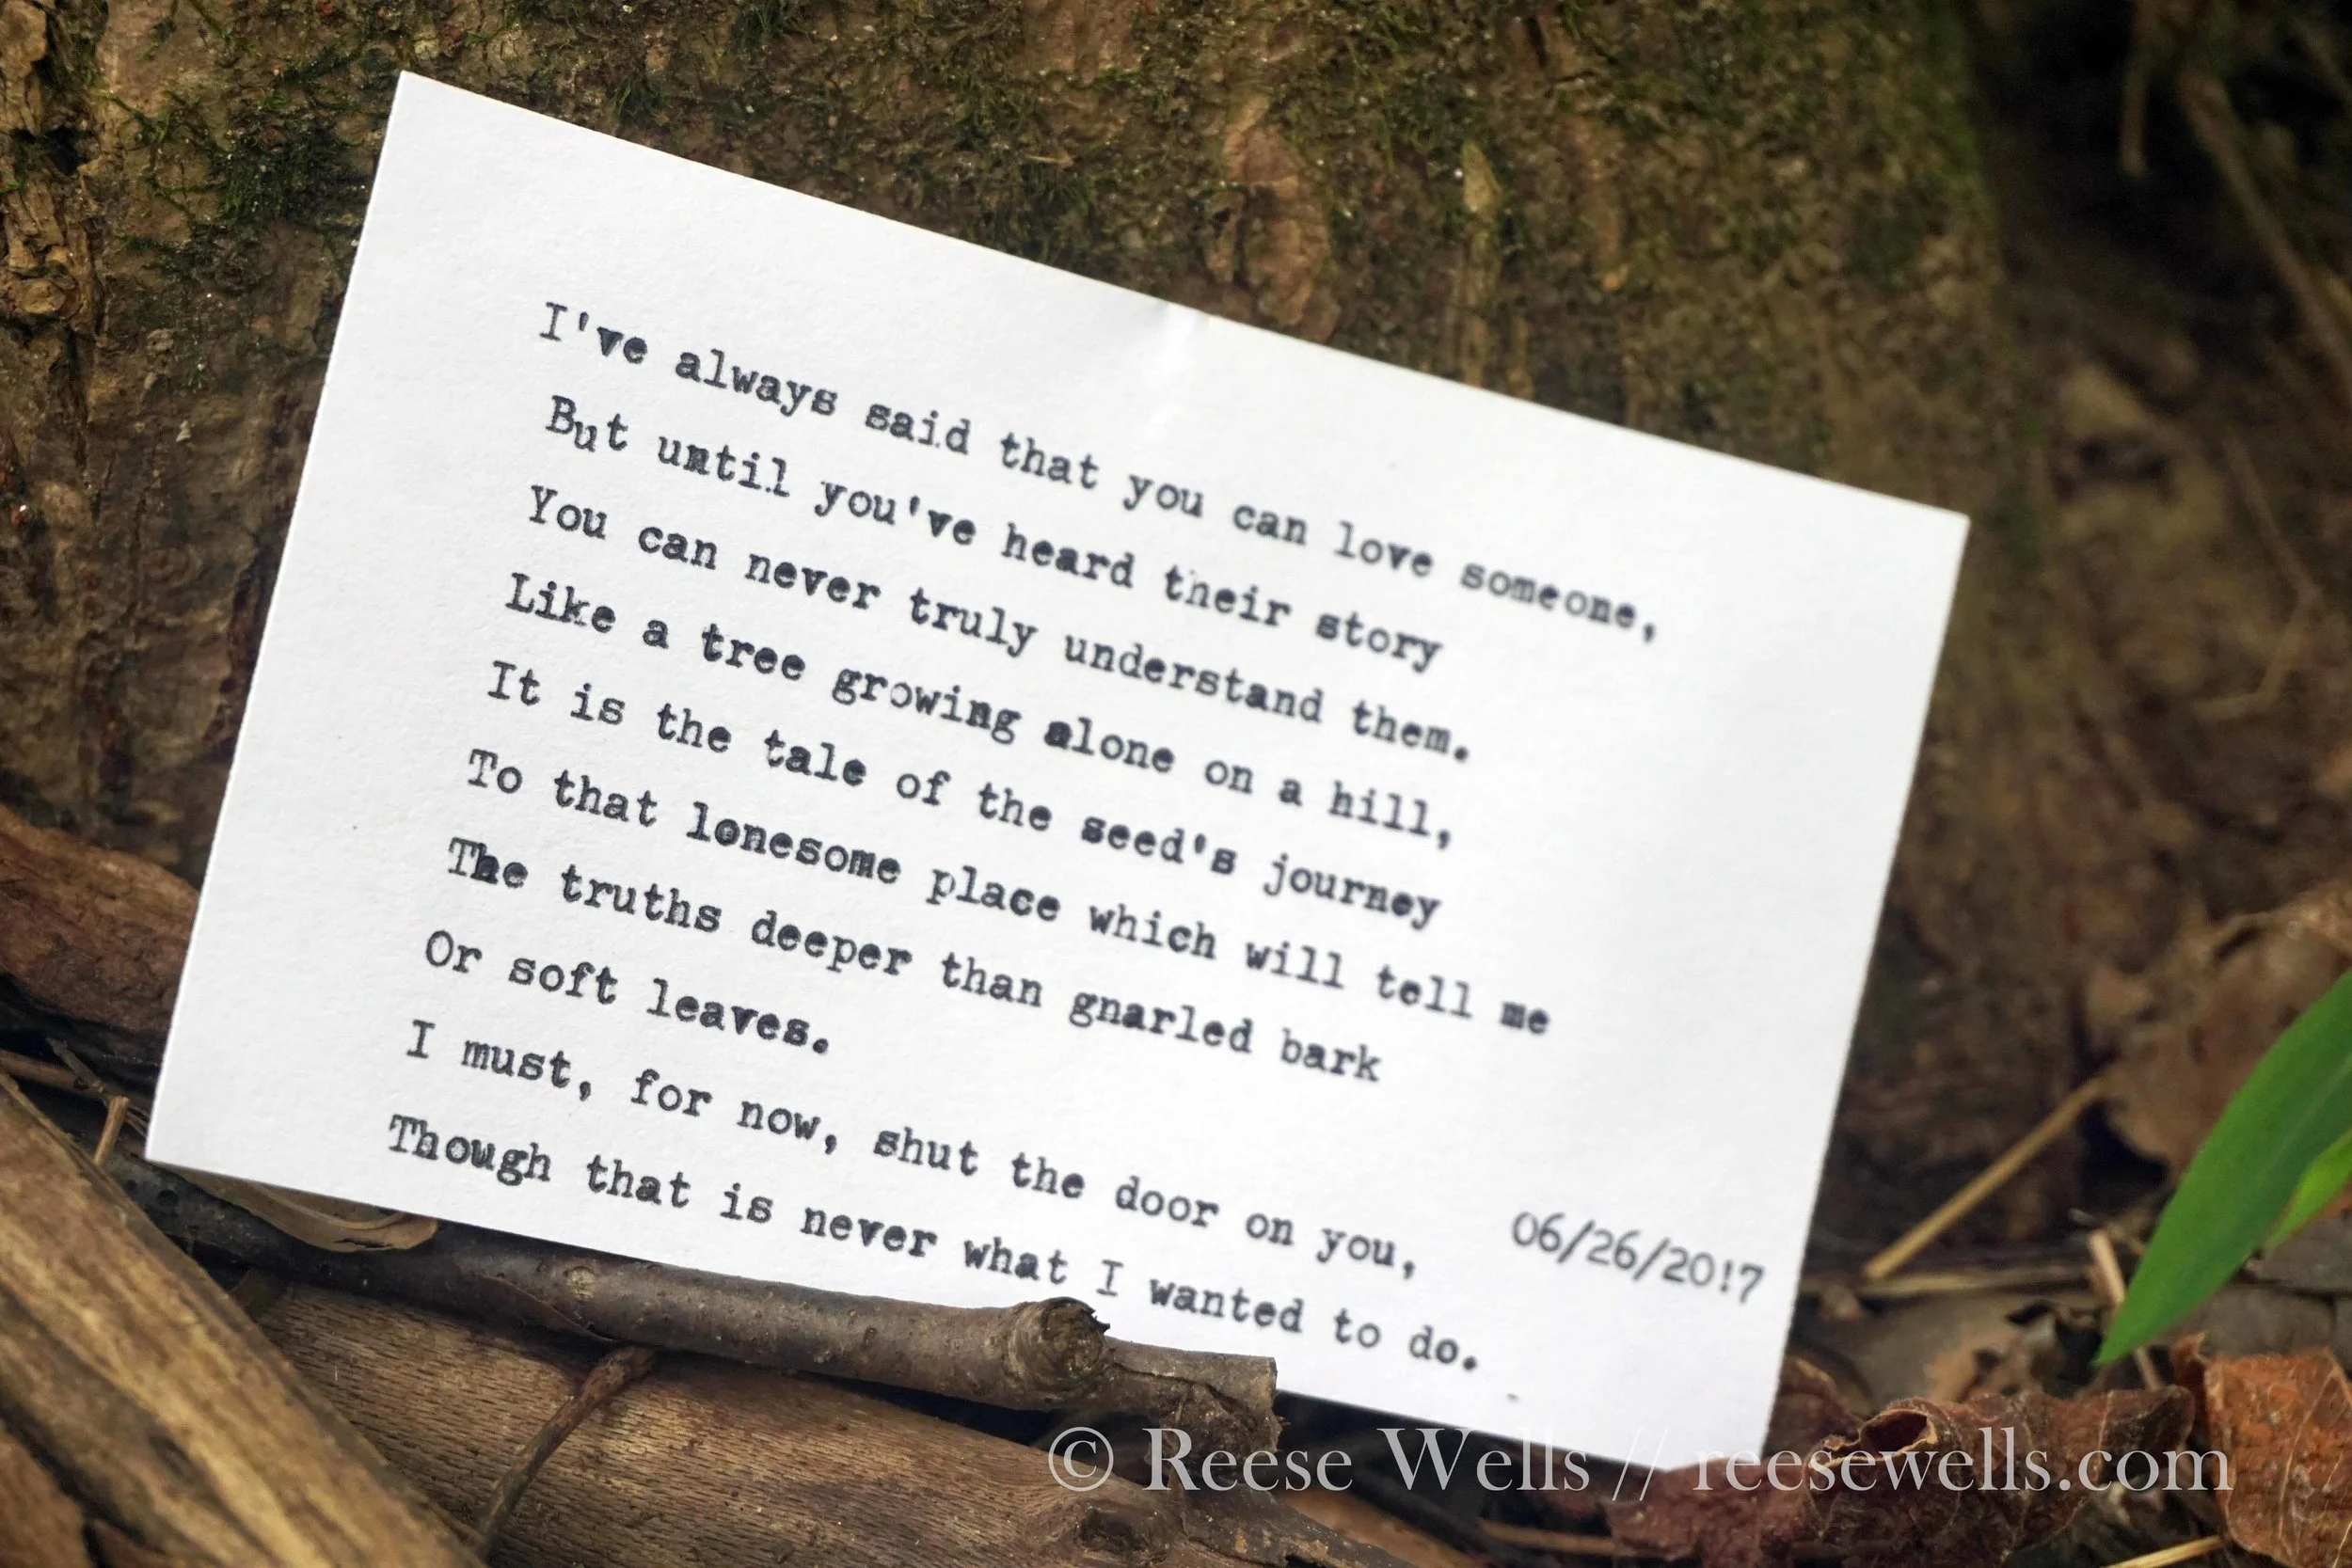 I've always said that you can love someone,
But until you've heard their story
You can never truly understand them.
Like a tree growing alone on a hill,
It is the tale of the seed's journey
To that lonesome place which will tell me
The truths deeper than gnarled bark
Or soft leaves.
I must, for now, shut the door on you,
Though that is never what I wanted to do.
06/26/2017
© Reese Wells // reesewells.com